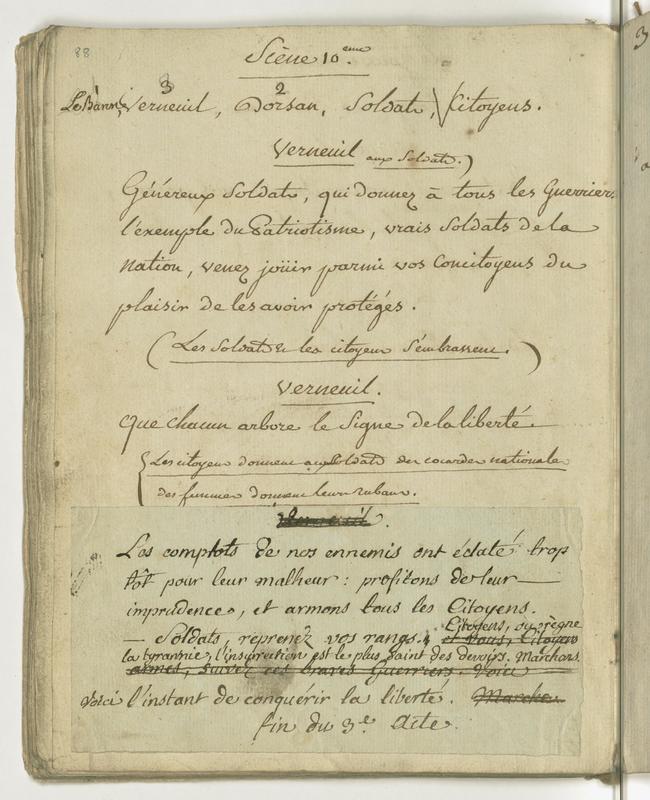 88
Scène 10eme.
3 2
Le Baron, Verneuil, Dorsan, Soldats, Citoyens.
Verneuil aux Soldats.)
Généreux Soldats, qui donnez à tous les Guerriers
l'exemple du Patriotisme, vrais Soldats de la
Nation, venez joüir parmi vos Concitoyens du
plaisir de les avoir protégés.
(Les Soldats & les citoyens s'embrassent.)
Verneuil.
Que chacun arbore le Signe de la liberté.
Les citoyens donnent aux Soldats des cocardes nationales
des femmes donnent leurs rubans.
Verneuil.
Les complots de nos ennemis ont éclaté trop
tôt pour leur malheur : profitons de leur
imprudence, et armons tous les Citoyens.
Citoyens, ou règne
— Soldats, reprenez vos rangs. et vous, Citoyens
la tyrannie, l'insurrection est le plus saint des devoirs. Marchons.
armés, suivez ces braves Guerriers. Voici
Voici l'instant de conquérir la liberté. Marche.
fin du 3e Acte.